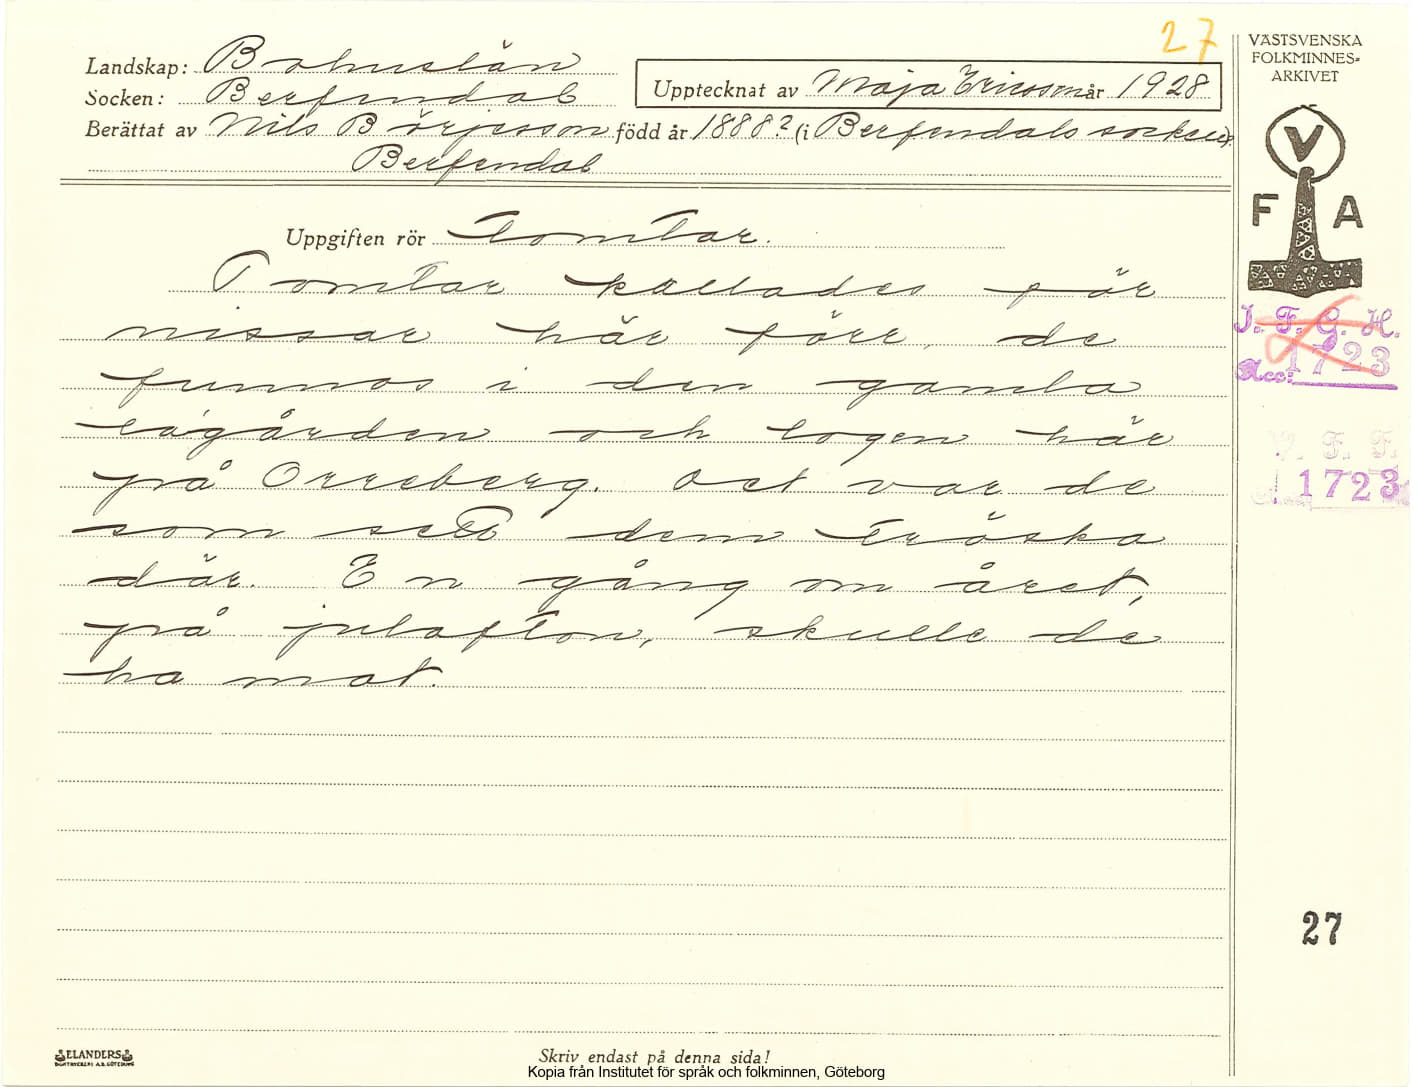 27
Landskap: Bohuslän
Socken: Berfendal
Upptecknat av Maja Ericsson år 1928
Berättat av Nils Börjesson född år 1888? (i Berfendals socken).
Berfendal
Uppgiften rör Tomtar.
Tomtar kallades för
nissar här förr, de
funnos i den gamla
lagården och logen här
på Orreberg. Det var de
som sett dem tröska
där. En gång om året,
på julafton, skulle de
ha mat.
VÄSTSVENSKA
FOLKMINNES-
ARKIVET
V
F A
I. F. G. H.
Acc: 1723
V. F. F.
1723
27
ELANDERS
BOKTRYCKERI A.B. GÖTEBORG
Skriv endast på denna sida!
Kopia från Institutet för språk och folkminnen, Göteborg